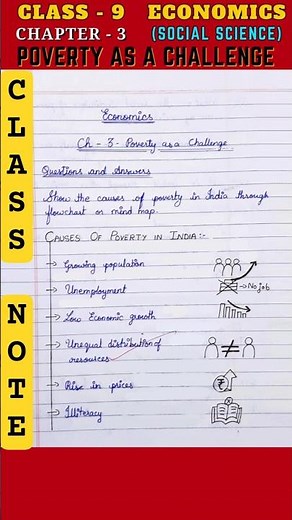 CLASS - 9 ECONOMICS
CHAPTER - 3 (SOCIAL SCIENCE)
POVERTY AS A CHALLENGE
CLASS NOTE
Economics
Ch - 3 - Poverty as a Challenge
Questions and Answers
Show the causes of poverty in India through
flowchart or mind map.
CAUSES OF POVERTY IN INDIA:-
→ Growing population
→ Unemployment → No job
→ Low Economic growth
→ Unequal distribution of
resources ≠
→ Rise in prices ₹
→ Illiteracy